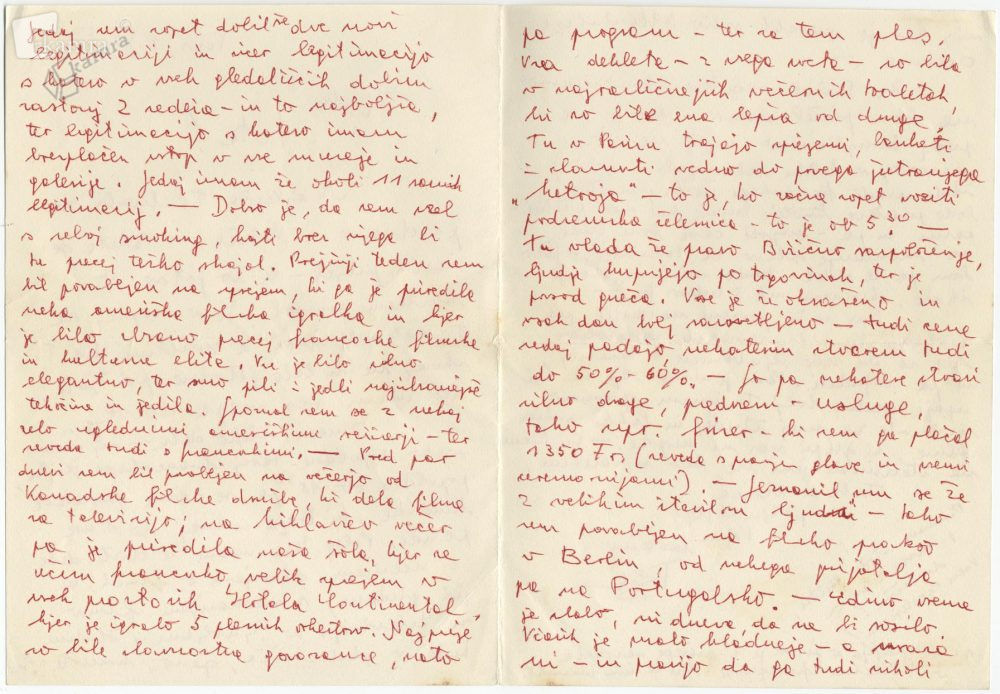 Sedaj sem zopet dobil še dve novi
legitimaciji in sicer legitimacijo
s katero v vseh gledališčih dobim
zastonj 2 sedeža – in to najboljša,
ter legitimacijo s katero imam
brezplačen vstop v vse muzeje in
galerije. Sedaj imam že okoli 11 raznih
legitimacij. — Dobro je, da sem vzel
s seboj smoking, kajti brez njega bi
tu precej težko shajal. Prejšnji teden sem
bil povabljen na sprejem, ki ga je priredila
neka ameriška filmska igralka in kjer
je bilo zbrano precej francoske filmske
in kulturne elite. Vse je bilo silno
elegantno, ter smo pili in jedli najizbranejše
tekočine in jedila. Spoznal sem se z nekaj
zelo uglednimi ameriškimi režiserji – ter
seveda tudi s francoskimi. — Pred par
dnevi sem bil povabljen na večerjo od
Kanadske filmske družbe, ki dela filme
za televizijo; na Miklavžev večer
pa je priredila naša šola, kjer se
učim francosko, velik sprejem v
vseh prostorih Hotela Continental
kjer je igralo 5 plesnih orkestrov. Najprej
so bile slavnostne govorance, nato
pa program – ter za tem ples.
Vsa dekleta – z vsega sveta – so bila
v najrazličnejših večernih toaletah,
ki so bile ena lepša od druge.
Tu v Parizu trajajo sprejemi, banketi
in slavnosti vedno do prvega jutranjega
"Metroja" – to je, ko začne zopet voziti
podzemska železnica to je ob 5.30 —
Tu vlada že pravo Božično razpoloženje,
ljudje kupujejo po trgovinah, ter je
povsod gneča. Vse je že okrašeno in
vsak dan bolj razsvetljeno – tudi cene
sedaj padajo nekaterim stvarem tudi
do 50% - 60%. – So pa nekatere stvari
silno drage, predvsem – usluge,
tako npr. frizer – ki sem ga plačal
1350 Frs (seveda s pranjem glave in vsemi
ceremonijami). – Seznanil sem se že
z velikim številom ljudi – tako
sem povabljen na filmsko
v Berlin, od nekega prijatelja
pa na Portugalsko. – Edino vreme
je slabo, ni dneva da ne bi rosilo.
Včasih je malo hladneje – a mraza
ni – in pravijo da ga tudi nikoli